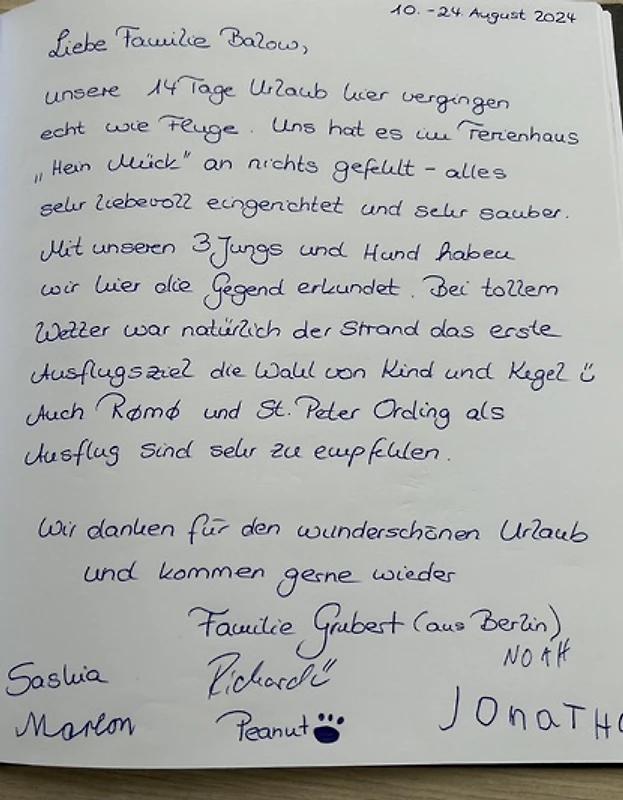 10. - 24. August 2024
Liebe Familie Balow,
unsere 14 Tage Urlaub hier vergingen
echt wie Fluge. Uns hat es im Ferienhaus
„Hein Mück" an nichts gefehlt - alles
sehr liebevoll eingerichtet und sehr sauber.
Mit unseren 3 Jungs und Hund haben
wir hier die Gegend erkundet. Bei tollem
Wetter war natürlich der Strand das erste
Ausflugsziel die Wahl von Kind und Kegel ü
Auch Rømø und St. Peter Ording als
Ausflug sind sehr zu empfehlen.
Wir danken für den wunderschönen Urlaub
und kommen gerne wieder
Familie Grubert (aus Berlin)
NOAH
Saskia Richard ü
Marlon Peanut JONATH